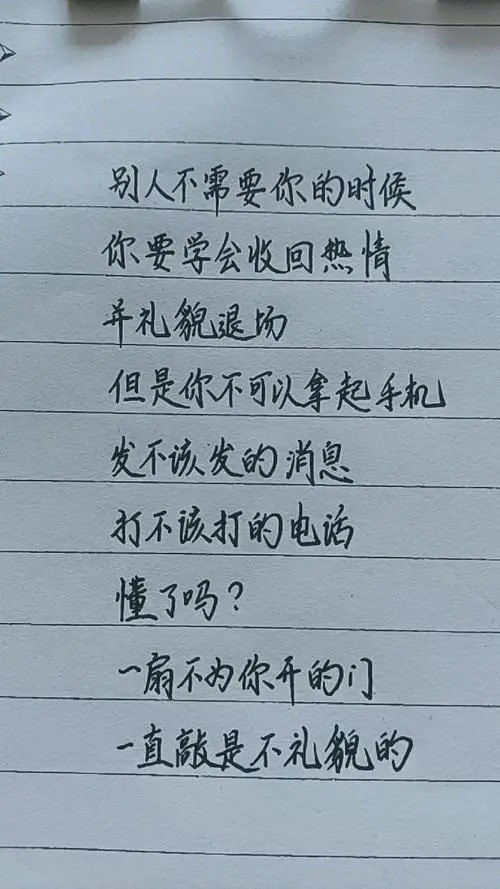 别人不需要你的时候
你要学会收回热情
并礼貌退场
但是你不可以拿起手机
发不该发的消息
打不该打的电话
懂了吗？
一扇不为你开的门
一直敲是不礼貌的